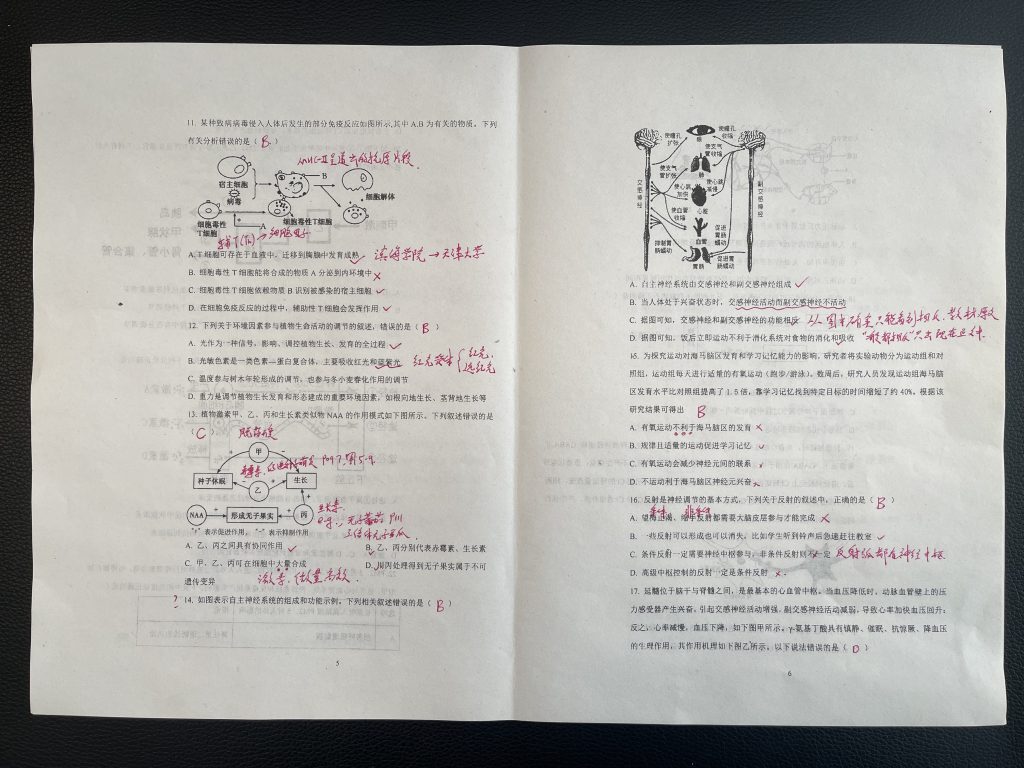 11. 某种致病病毒侵入人体后发生的部分免疫反应如图所示,其中 A,B 为有关的物质。下列
有关分析错误的是（ B ）
宿主T细胞
病毒
B
细胞解体
细胞毒性
T细胞
A
细胞毒性T细胞
A. T 细胞可存在于血液中，迁移到胸腺中发育成熟 滨海学院→天津大学
B. 细胞毒性 T 细胞能将合成的物质 A 分泌到内环境中
C. 细胞毒性 T 细胞依赖物质 B 识别被感染的宿主细胞
D. 在细胞免疫反应的过程中，辅助性 T 细胞会发挥作用
12. 下列关于环境因素参与植物生命活动的调节的叙述，错误的是（ B ）
A. 光作为一种信号，影响、调控植物生长、发育的全过程
B. 光敏色素是一类色素—蛋白复合体，主要吸收红光和蓝紫光 红光
远红光
C. 温度参与树木年轮形成的调节，也参与冬小麦春化作用的调节
D. 重力是调节植物生长发育和形态建成的重要环境因素，如根向地生长、茎背地生长等
13. 植物激素甲、乙、丙和生长素类似物 NAA 的作用模式如下图所示，下列叙述错误的是
（ C ） 脱落酸
甲
种子休眠
乙
生长
NAA
形成无子果实
丙
生长素
"+" 表示促进作用，"-" 表示抑制作用
A. 乙、丙之间具有协同作用 B. 乙、丙分别代表赤霉素、生长素
C. 甲、乙、丙可在细胞中大量合成 D. 用丙处理得到无子果实属于不可
遗传变异 微量高效
? 14. 如图表示自主神经系统的组成和功能示例，下列相关叙述错误的是（ B ）
5
使瞳孔
扩张
眼
使瞳孔
收缩
使支气
管收缩
使支气
管扩张
肺
使心跳
加快
使心跳
减慢
心脏
使血管
收缩
血管
抑制胃
肠蠕动
促进胃
肠蠕动
胃肠
促进胃
肠蠕动
交感神经
副交感神经
A. 自主神经系统由交感神经和副交感神经组成
B. 当人体处于兴奋状态时，交感神经活动而副交感神经不活动
C. 据图可知，交感神经和副交感神经的功能相反
D. 据图可知，饭后立即运动不利于消化系统对食物的消化和吸收
15. 为探究运动对海马脑区发育和学习记忆能力的影响，研究者将实验动物分为运动组和对
照组，运动组每天进行适量的有氧运动（跑步/游泳）。数周后，研究人员发现运动组海马脑
区发育水平比对照组提高了 1.5 倍，靠学习记忆找到特定目标的时间缩短了约 40%。根据该
研究结果可得出 B
A. 有氧运动不利于海马脑区的发育
B. 规律且适量的运动促进学习记忆
C. 有氧运动会减少神经元间的联系
D. 不运动利于海马脑区神经元兴奋
16. 反射是神经调节的基本方式，下列关于反射的叙述中，正确的是（ B ）
A. 望梅止渴、缩手反射都需要大脑皮层参与才能完成
B. 一些反射可以形成也可以消失，比如学生听到铃声后急速赶往教室
C. 条件反射一定需要神经中枢参与，非条件反射则不一定 反射级都有神经中枢
D. 高级中枢控制的反射一定是条件反射
17. 延髓位于脑干与脊髓之间，是最基本的心血管中枢。当血压降低时，动脉血管壁上的压
力感受器产生兴奋，引起交感神经活动增强，副交感神经活动减弱，导致心率加快血压回升；
反之，心率减慢，血压下降，如下图甲所示。γ-氨基丁酸具有镇静、催眠、抗惊厥、降血压
的生理作用，其作用机理如下图乙所示。以下说法错误的是（ D ）
6